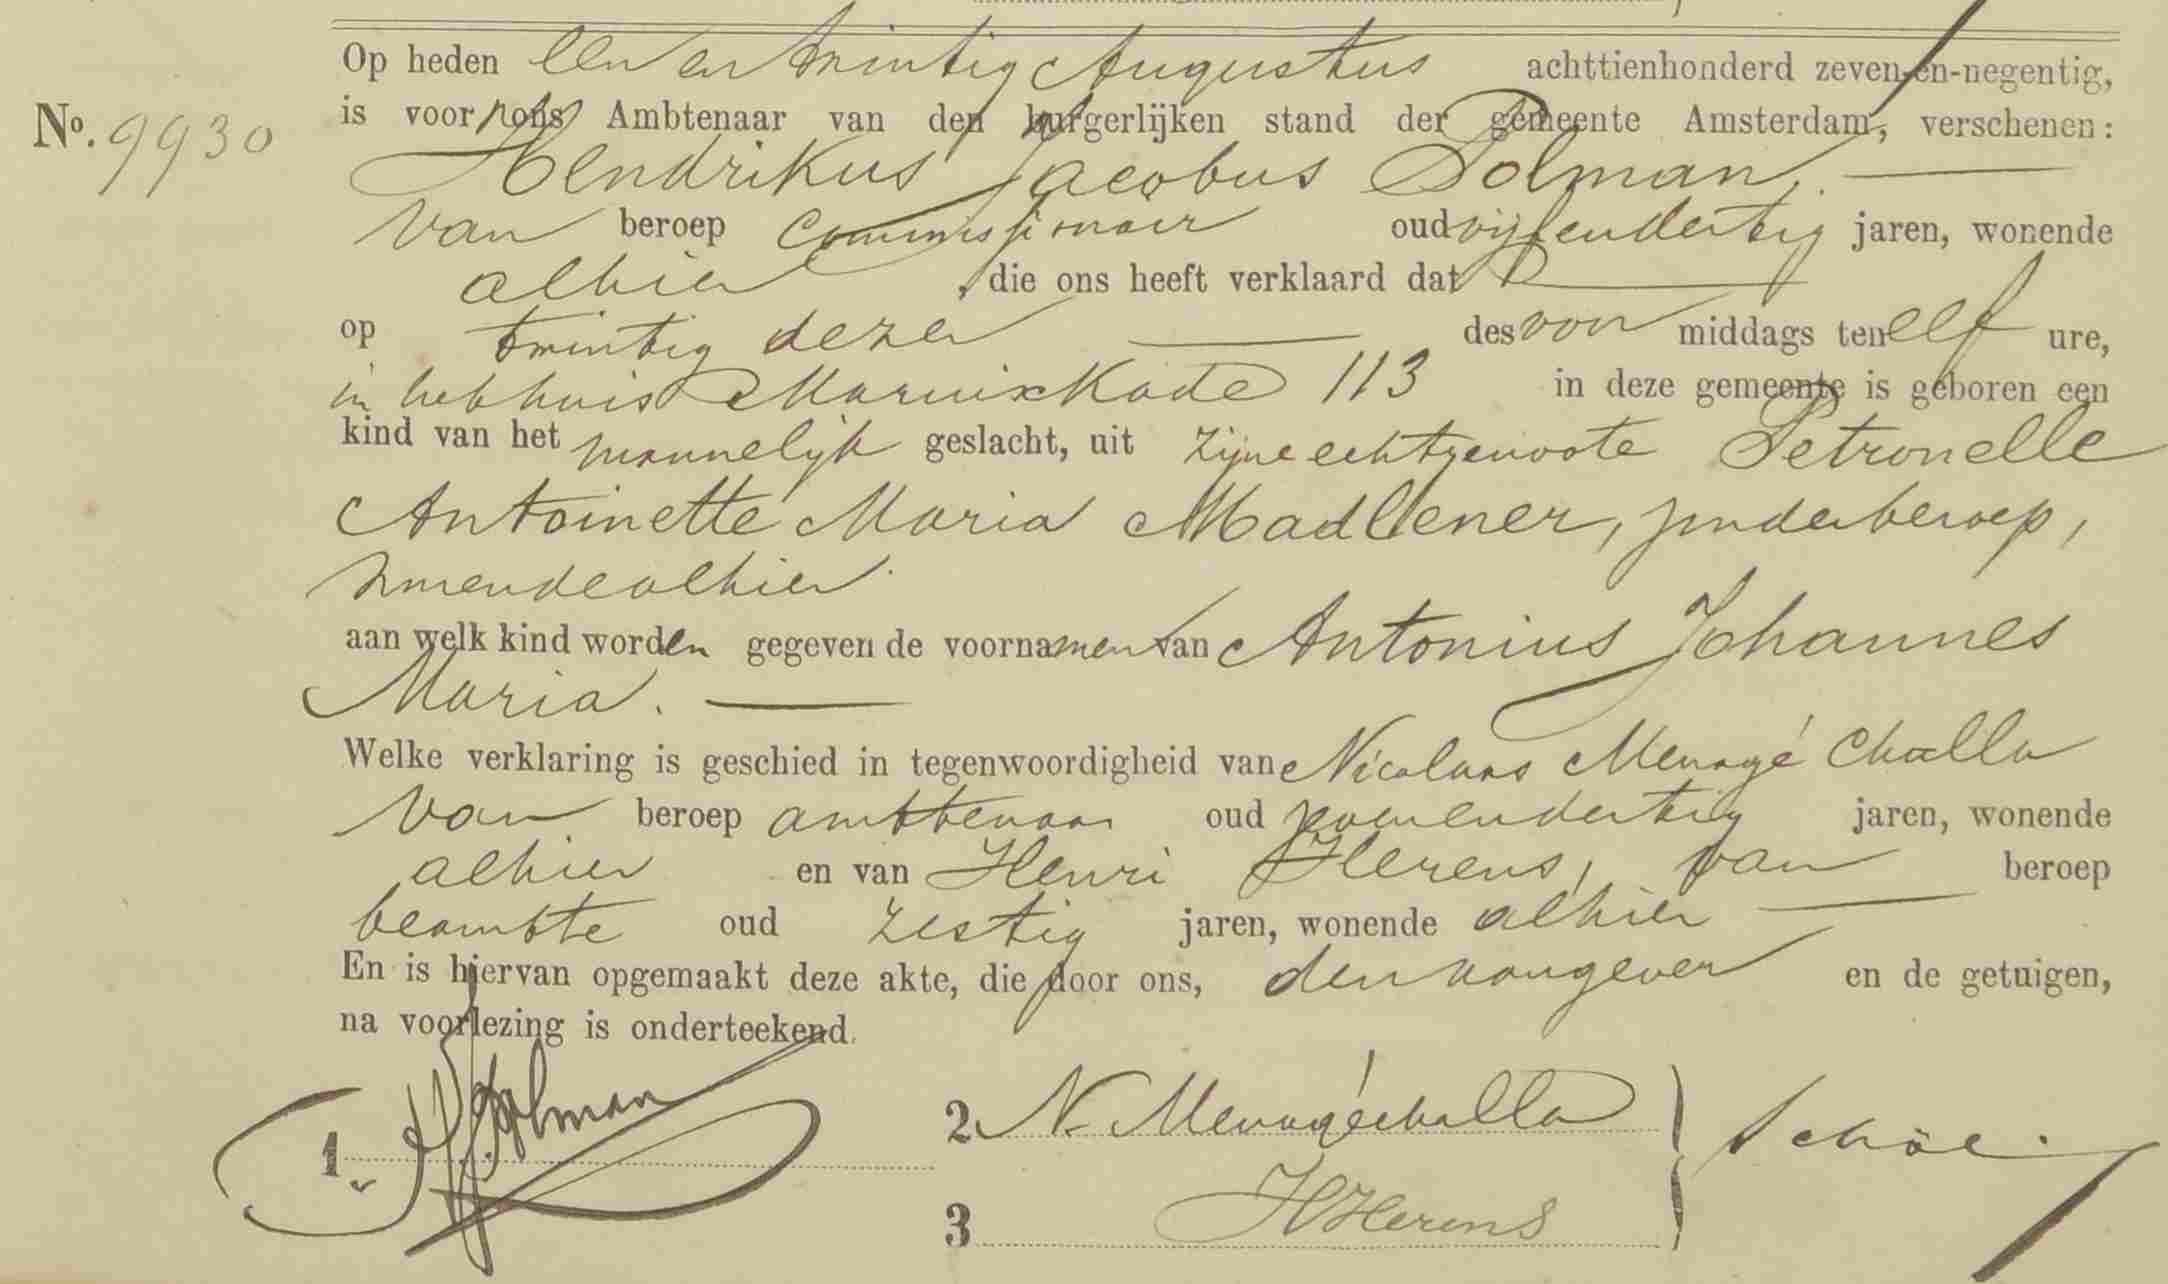 Op heden een en twintig Augustus achttienhonderd zeven-en-negentig,
No. 9930
is voor ons Ambtenaar van den burgerlijken stand der gemeente Amsterdam, verschenen:
Hendrikus Jacobus Polman.
van beroep Commissionair oud vijfendertig jaren, wonende
alhier, die ons heeft verklaard dat
op twintig dezer des voor middags ten elf ure,
in het huis Marnixkade 113 in deze gemeente is geboren een
kind van het mannelijk geslacht, uit zijne echtgenoote Petronelle
Antoinette Maria Madlener, zonder beroep,
wonende alhier.
aan welk kind worden gegeven de voornamen van Antonius Johannes
Maria.
Welke verklaring is geschied in tegenwoordigheid van Nicolaas Menagé Challa
van beroep ambtenaar oud jaren, wonende
alhier en van Henri Herens, van beroep
beambte oud zestig jaren, wonende alhier
En is hiervan opgemaakt deze akte, die door ons, den aangever en de getuigen,
na voorlezing is onderteekend.
1 HJPolman
2 N. Menagéchalla
3 HHerens